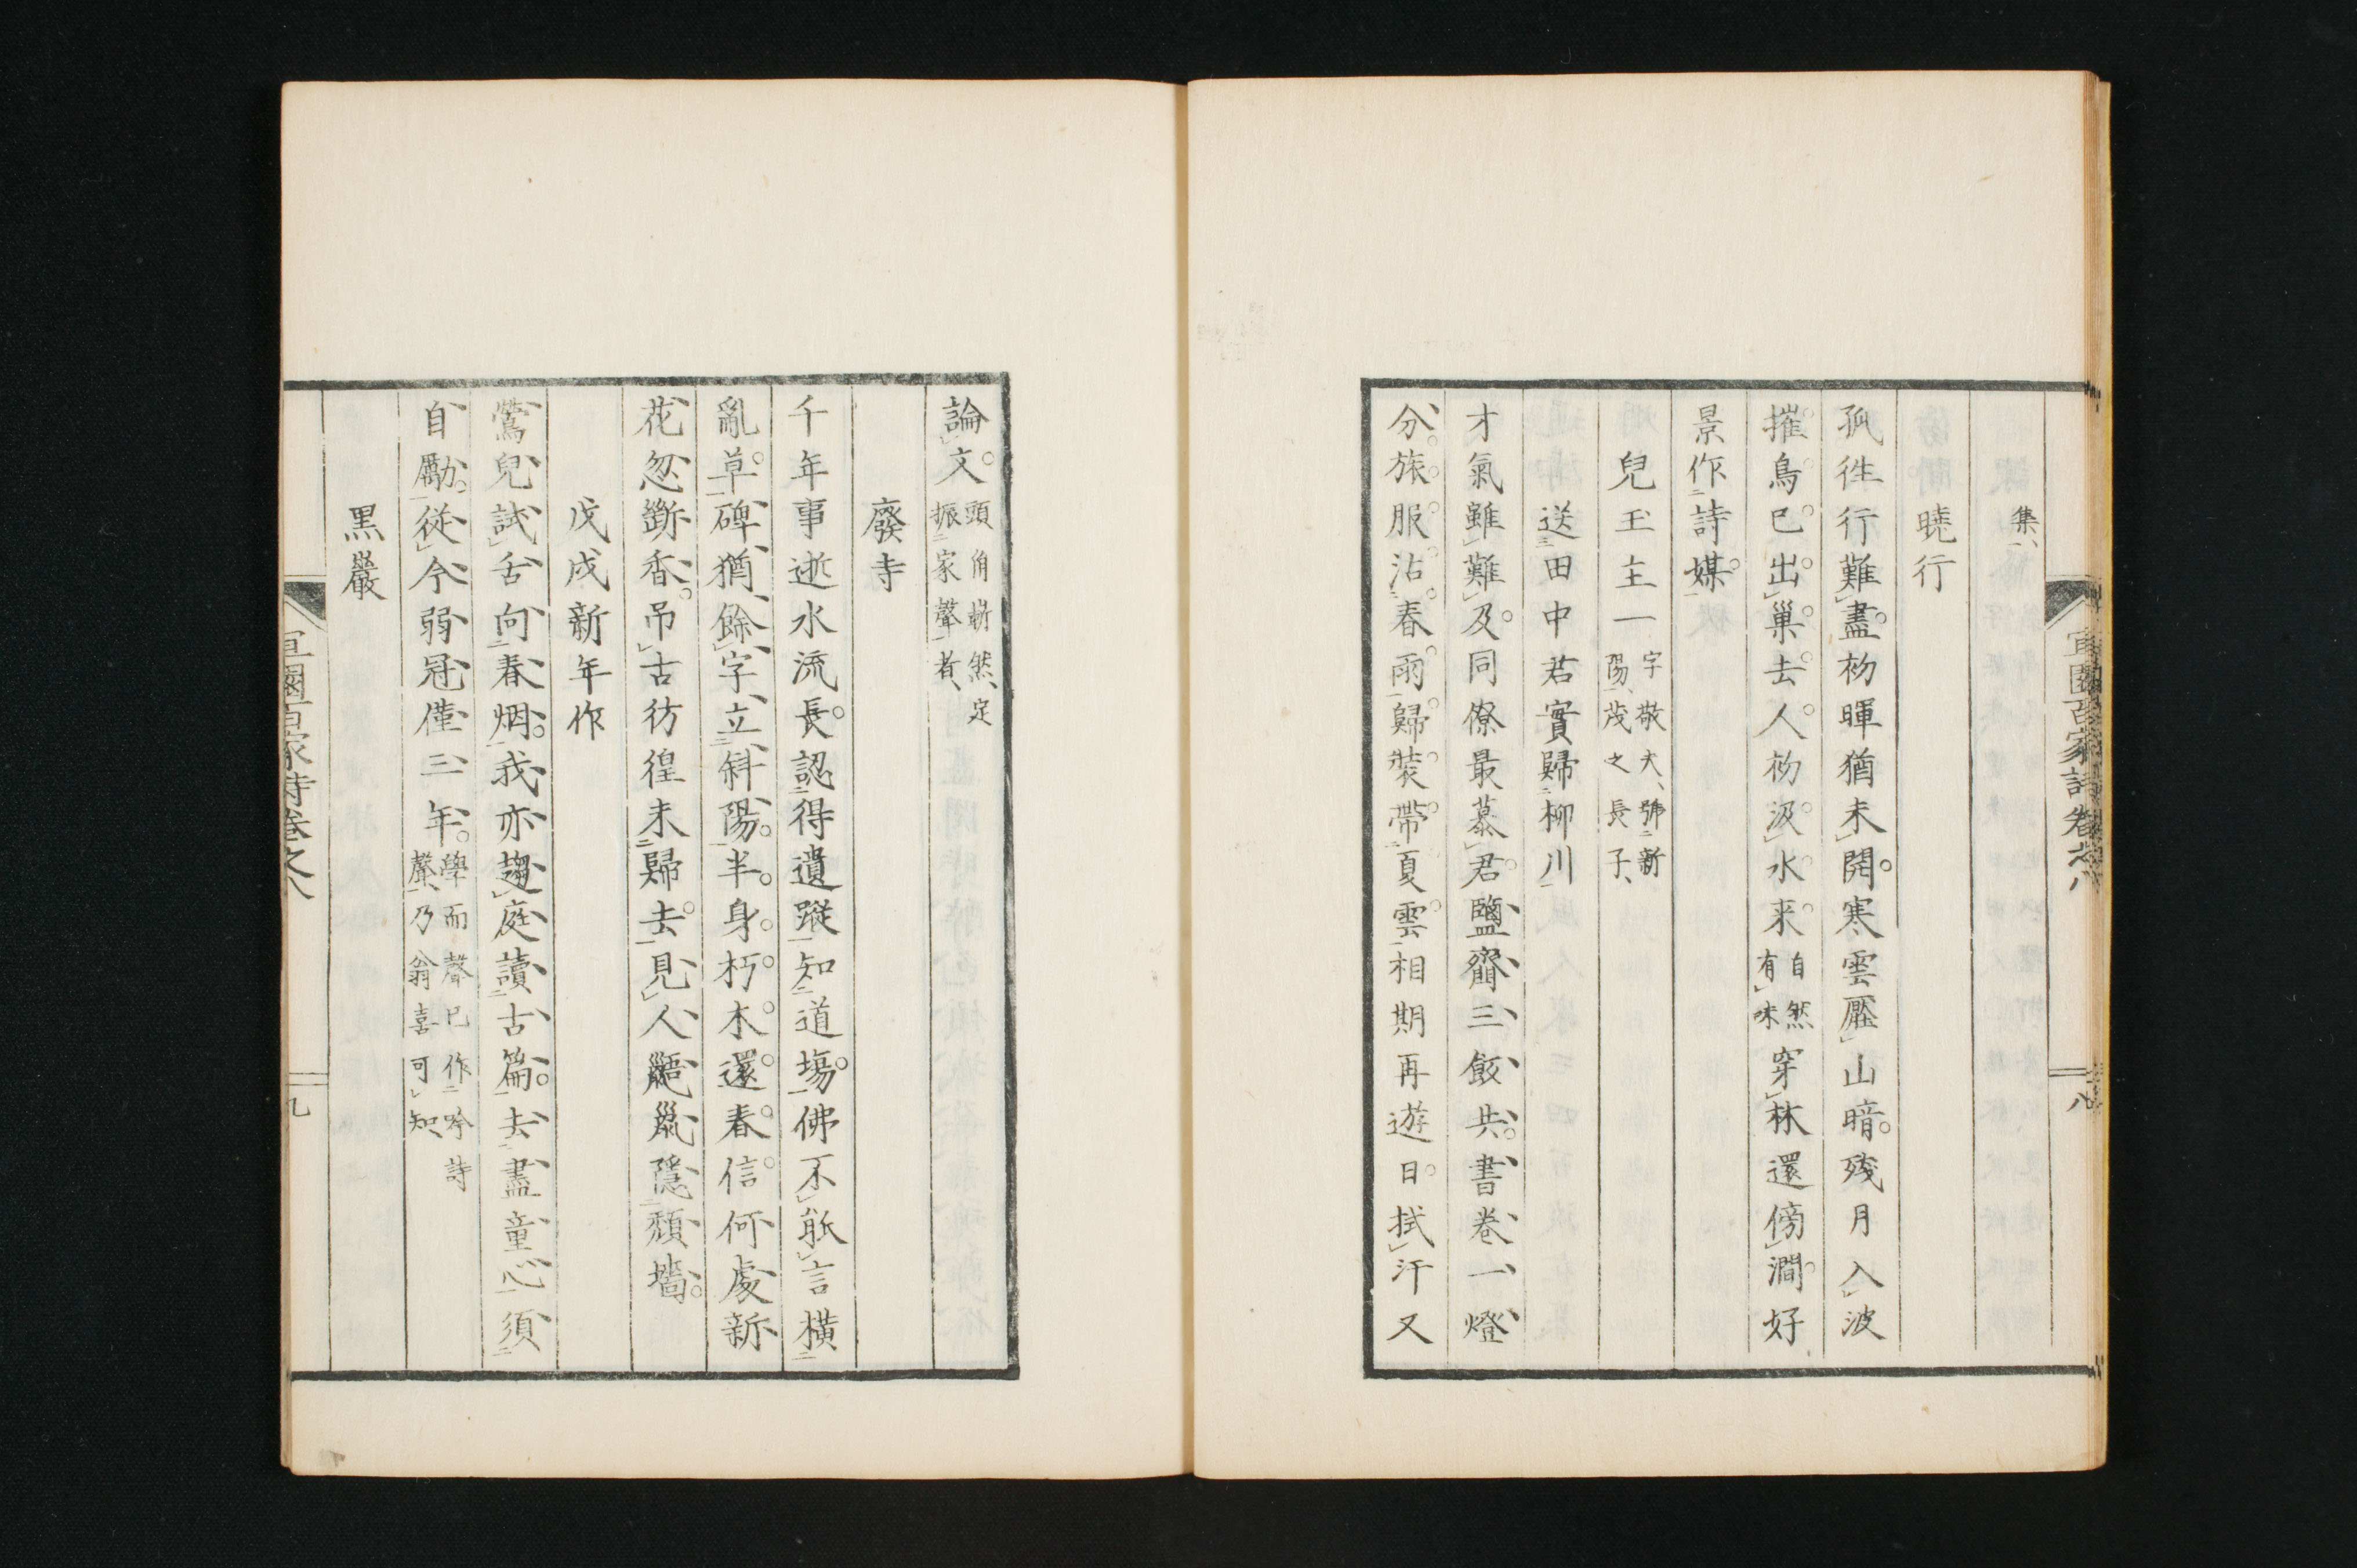 集
曉行
孤往行難盡初暉猶未開寒雲壓山暗殘月入波
摧鳥已出巢去人初汲水来自然有味穿林還傍澗好
景作詩媒
兒玉主一字敬夫號新陽茂之長子
送田中君實歸柳川
才氣雖難及同僚最慕君鹽齏三飯共書卷一燈
分旅服沾春雨歸裝帶夏雲相期再遊日拭汗又
宜園百家詩卷之八
八
論文頭角嶄然定振家聲者
廢寺
千年事逝水流長認得遺蹤知道場佛不能言橫
亂草碑猶餘字立斜陽半身朽木還春信何處新
花忽斷香吊古彷徨未歸去見人鼯鼠隱頹墻
戊戌新年作
鶯兒試舌向春烟我亦趨庭讀古篇去盡童心須
自勵從今弱冠僅三年學而聲已作吟詩聲乃翁喜可知
黑巖
宜園百家詩卷之八
九